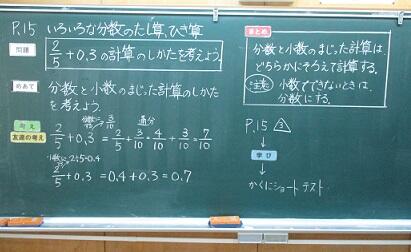 P.15 いろいろな分数のたし算、ひき算
問題
2/5 + 0.3 の計算のしかたを考えよう。
めあて
分数と小数のまじった計算のしかた
を考えよう。
考え
友達の考え
分数に 3/10 通分
2/5 + 0.3 = 2/5 + 3/10 = 4/10 + 3/10 = 7/10
小数に 2÷5=0.4
2/5 + 0.3 = 0.4 + 0.3 = 0.7
まとめ
分数と小数のまじった計算は
どちらかにそろえて計算する。
注意 小数でできないときは、
分数にする。
P.15 △3
↓
学び
↓
かくにショートテスト